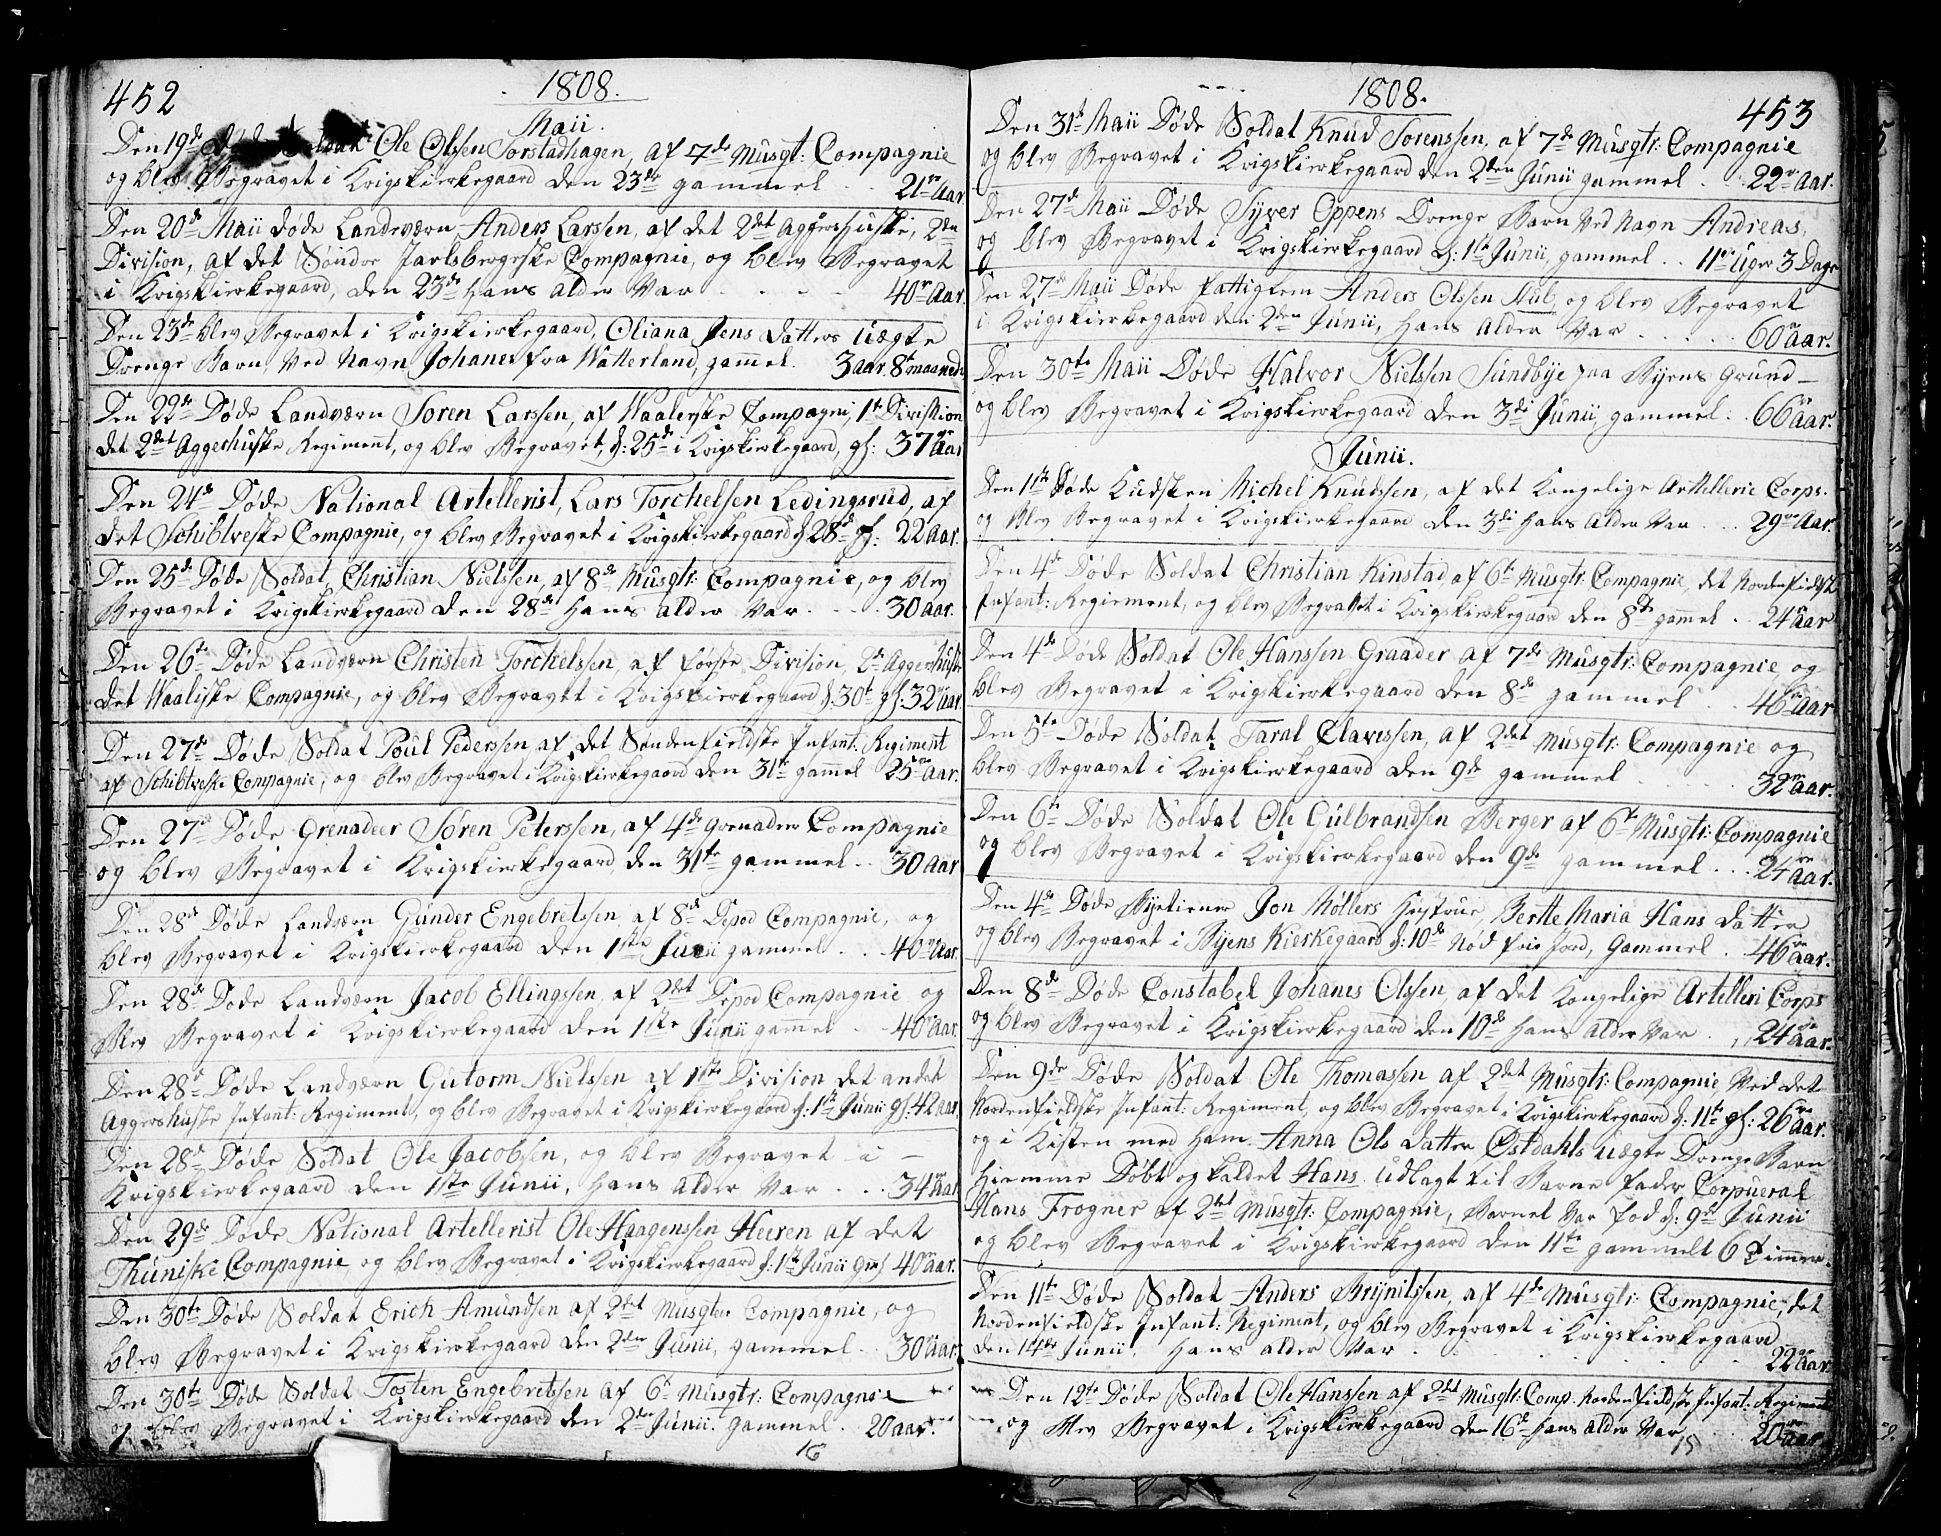 452
1808.
Maii.
Den 19de Døde Soldat Ole Olsen Torstadhagen, af 7de Musqt: Compagnie
og blev Begravet i Krigskierkegaard den 23de gammel . . 21 Aar
Den 20de Maii døde Landeværn Anders Larssen, af det 2det Aggershuuske, 2den
Division, af det Søndre Jarlsbergeske Compagnie, og blev Begravet
i Krigskierkegaard, den 23de Hans alder Var . . . . 40 Aar
Den 23de blev Begravet i Krigskierkegaard, Oliana Jens datters uægte
Drenge Barn Ved Navn Johanes fra Watterland, gammel. 3 aar 8te maaned
Den 22de Døde Landværn Søren Larssen, af Waalerske Compagni, 1te Divission
det 2det Aggerhuske Regiment, og blev Begravet, d: 25de i Krigskierkegaard, gl: 37 Aar
Den 24de Døde National Artellerist, Lars Torchelsen Ledingsrud, af
det Schibtveske Compagnie, og blev Begravet i Krigskierkegaard d 28de gl: 22 Aar.
Den 25de Døde Soldat, Christian Nielsen, af 8de Musqtr: Compagnie, og blev
Begravet i Krigskierkegaard den 28de Hans alder Var . . . . 30 Aar.
Den 26te Døde Landværn Christen Torchelssen, af første Division, 2de Aggershuske
det Waalerske Compagnie, og blev Begravet i Krigskierkegaard d: 30te gl: 32 Aar
Den 27de Døde Soldat Poul Pederssen af det Søndenfieldske Infant: Regiment
af Schibtveske Compagnie, og blev Begravet i Krigskierkegaard den 31te gammel 25 Aar.
Den 27de Døde Grenadeer Søren Peterssen, af 4de Grenadeer Compagnie
og blev Begravet i Krigskierkegaard, den 31te gammel . . 30 Aar
Den 28de Døde Landværn Gunder Engebretssen af 8de Depod Compagnie, og
blev Begravet i Krigskierkegaard den 1ste Junii gammel . . . 40 Aar.
Den 28de Døde Landværn Jacob Ellingssen, af 2det Depod Compagnie og
Blev Begravet i Krigskierkegaard den 1ste Junii gamel . . 40 Aar.
Den 28de Døde Landværn Gutorm Nielssen af 1ste Division det andet
Aggershuske Infant: Regiment, og blev Begravet i Krigskierkegaard d: 1ste Junii gl: 42 Aar
Den 28de Døde Soldat Ole Jacobsen, og blev Begravet i
Krigskierkegaard den 1ste Junii, Hans alder Var . . . 34 Aar
Den 29de Døde National Artellerist Ole Haagenssen Heeren af det
Thuniske Compagnie og blev Begravet i Krigskierkegaard d: 1ste Junii gml 40 Aar.
Den 30te Døde Soldat Erich Amundsen af 2det Musqter Compagnie, og
blev Begravet i Krigskierkegaard den 2den Junii, gammel . . 30 Aar.
Den 30te Døde Soldat Tosten Engebretssen af 6te Musqtr: Compagnie
og blev Begravet i Krigskierkegaard den 2den Junii. gammel. 20 aar.
16
1808.
453
Den 31te Maii Døde Soldat Knud Sørenssen, af 7de Musqtr: Compagnie
og blev Begravet i Krigskierkegaard den 2den Junii gammel . . 22 Aar.
Den 27de Maii Døde Syver Oppens Drenge Barn Ved Navn Andreas,
og blev Begravet i Krigskierkegaard d: 1ste Junii, gammel . . 11 Uger 3 Dage
Den 27de Maii Døde fattiglem Anders Olssen og blev Begravet
i Krigskierkegaard den 2den Junii, Hans alder Var . . . . . 60 Aar.
Den 30te Maii Døde Halvor Nielssen Sundbye paa Byens Grund
og blev Begravet i Krigskierkegaard den 3de Junii gammel . 66 Aar.
Junii.
Den 1ste Døde Kudsken Michel Knudssen, af det Kongelige Artellerie Corps.
og Blev Begravet i Krigskierkegaard den 3de Hans Alder Var . . . 29 Aar.
Den 4de Døde Soldat Christian Kinstad af 6te Musqtr: Compagnie, det Nordenfieldske
Infant: Regiement, og blev Begravet i Krigskierkegaard den 8de gammel . . 24 Aar
Den 4de Døde Soldat Ole Hanssen Graader af 7de Musqtr: Compagnie og
blev Begravet i Krigskierkegaard den 8de gammel . . 46 Aar
Den 5te Døde Soldat Taral Clavessen, af 2det Musqtr: Compagnie og
blev Begravet i Krigskierkegaard den 9de gammel . . . . . 32 Aar.
Den 6te Døde Soldat Ole Gulbrandsen Berger af 6te Musqtr: Compagnie
og blev Begravet i Krigskierkegaard den 9de gammel . . . 24 Aar.
Den 4de Døde Byetiener Jon Møllers Hustrue, Berthe Maria Hans datter
og blev Begravet i Byens Kierkegaard d: 10de Nød frie Jord, Gammel . 46 Aar.
Den 8de Døde Constabel Johanes Olssen, af det Kongelige Artelleri Corps
og blev Begravet i Krigskierkegaard den 10de Hans Alder Var . . . 24 Aar.
Den 9de Døde Soldat Ole Thomassen af 2det Musqtr: Compagnie Ved det
Nordenfieldske Infant: Regiment, og blev Begravet i Krigskierkegaard d: 11te gl: 26 Aar.
og i Kisten med Ham Anna Ols datter Østdahls uægte Drenge Barn
Hiemme Døbt og kaldet Hans. Udlagt til Barne fader Corpueral
Hans Frogner af 2det Musqtr: Compagnie, Barnet Var fød d: 9de Junii
og blev Begravet i Krigskierkegaard den 11te gammelt 6 Timmer.
Den 11te Døde Soldat Anders Brynilssen, af 4de Musqtr: Compagnie, det
Nordenfieldske Infant: Regiment, og blev Begravet i Krigskierkegaard
den 14de Junii, Hans alder Var . . . . . . . 22 Aar
Den 12te Døde Soldat Ole Hanssen af 2det Musqtr: Comp. Nordenfieldske Infant: Regiment
og Blev Begravet i Krigskierkegaard den 16de Hans Alder Var . . 20 Aar.
15